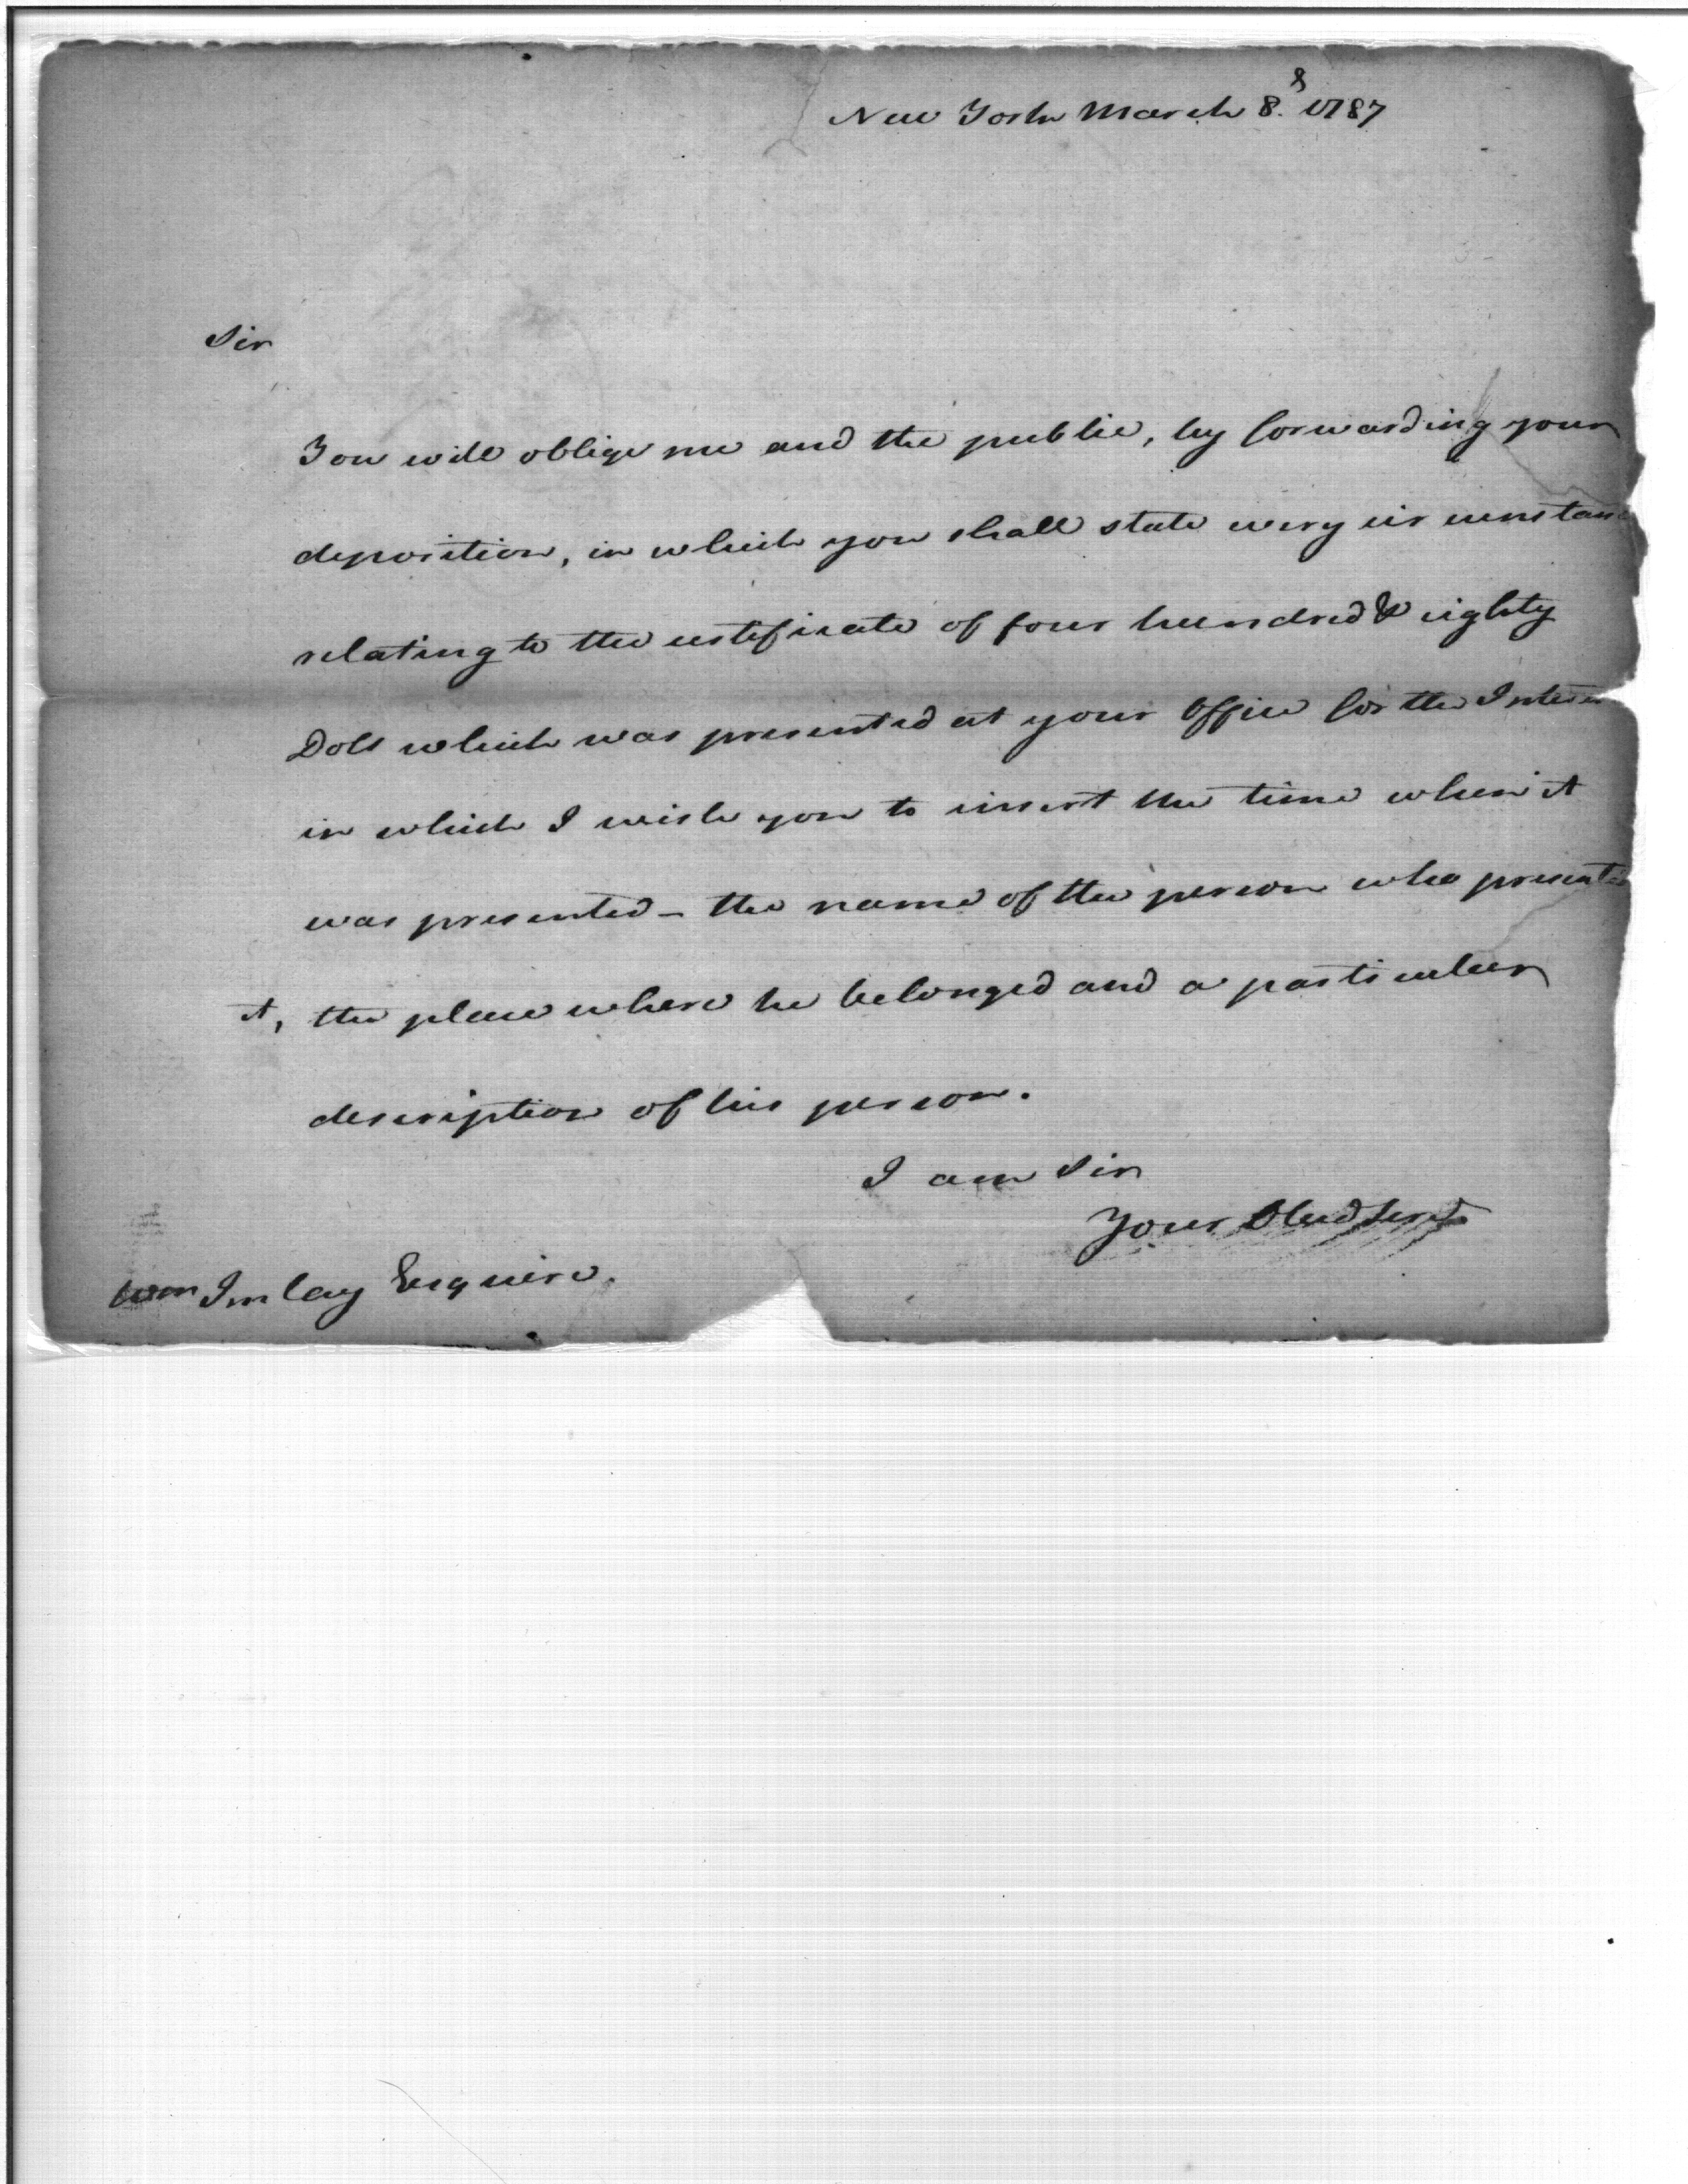 New York March 8. 1787
Sir
You will oblige me and the public, by forwarding your
deposition, in which you shall state every circumstanc
relating to the certificate of four hundred & eighty
Dols which was presented at your Office for the Interes
in which I wish you to insert the time when it
was presented - the name of the person who presented
it, the place where he belonged and a particular
description of his person.
I am Sir
Your Obed Servt
Wm Imlay Esquire.